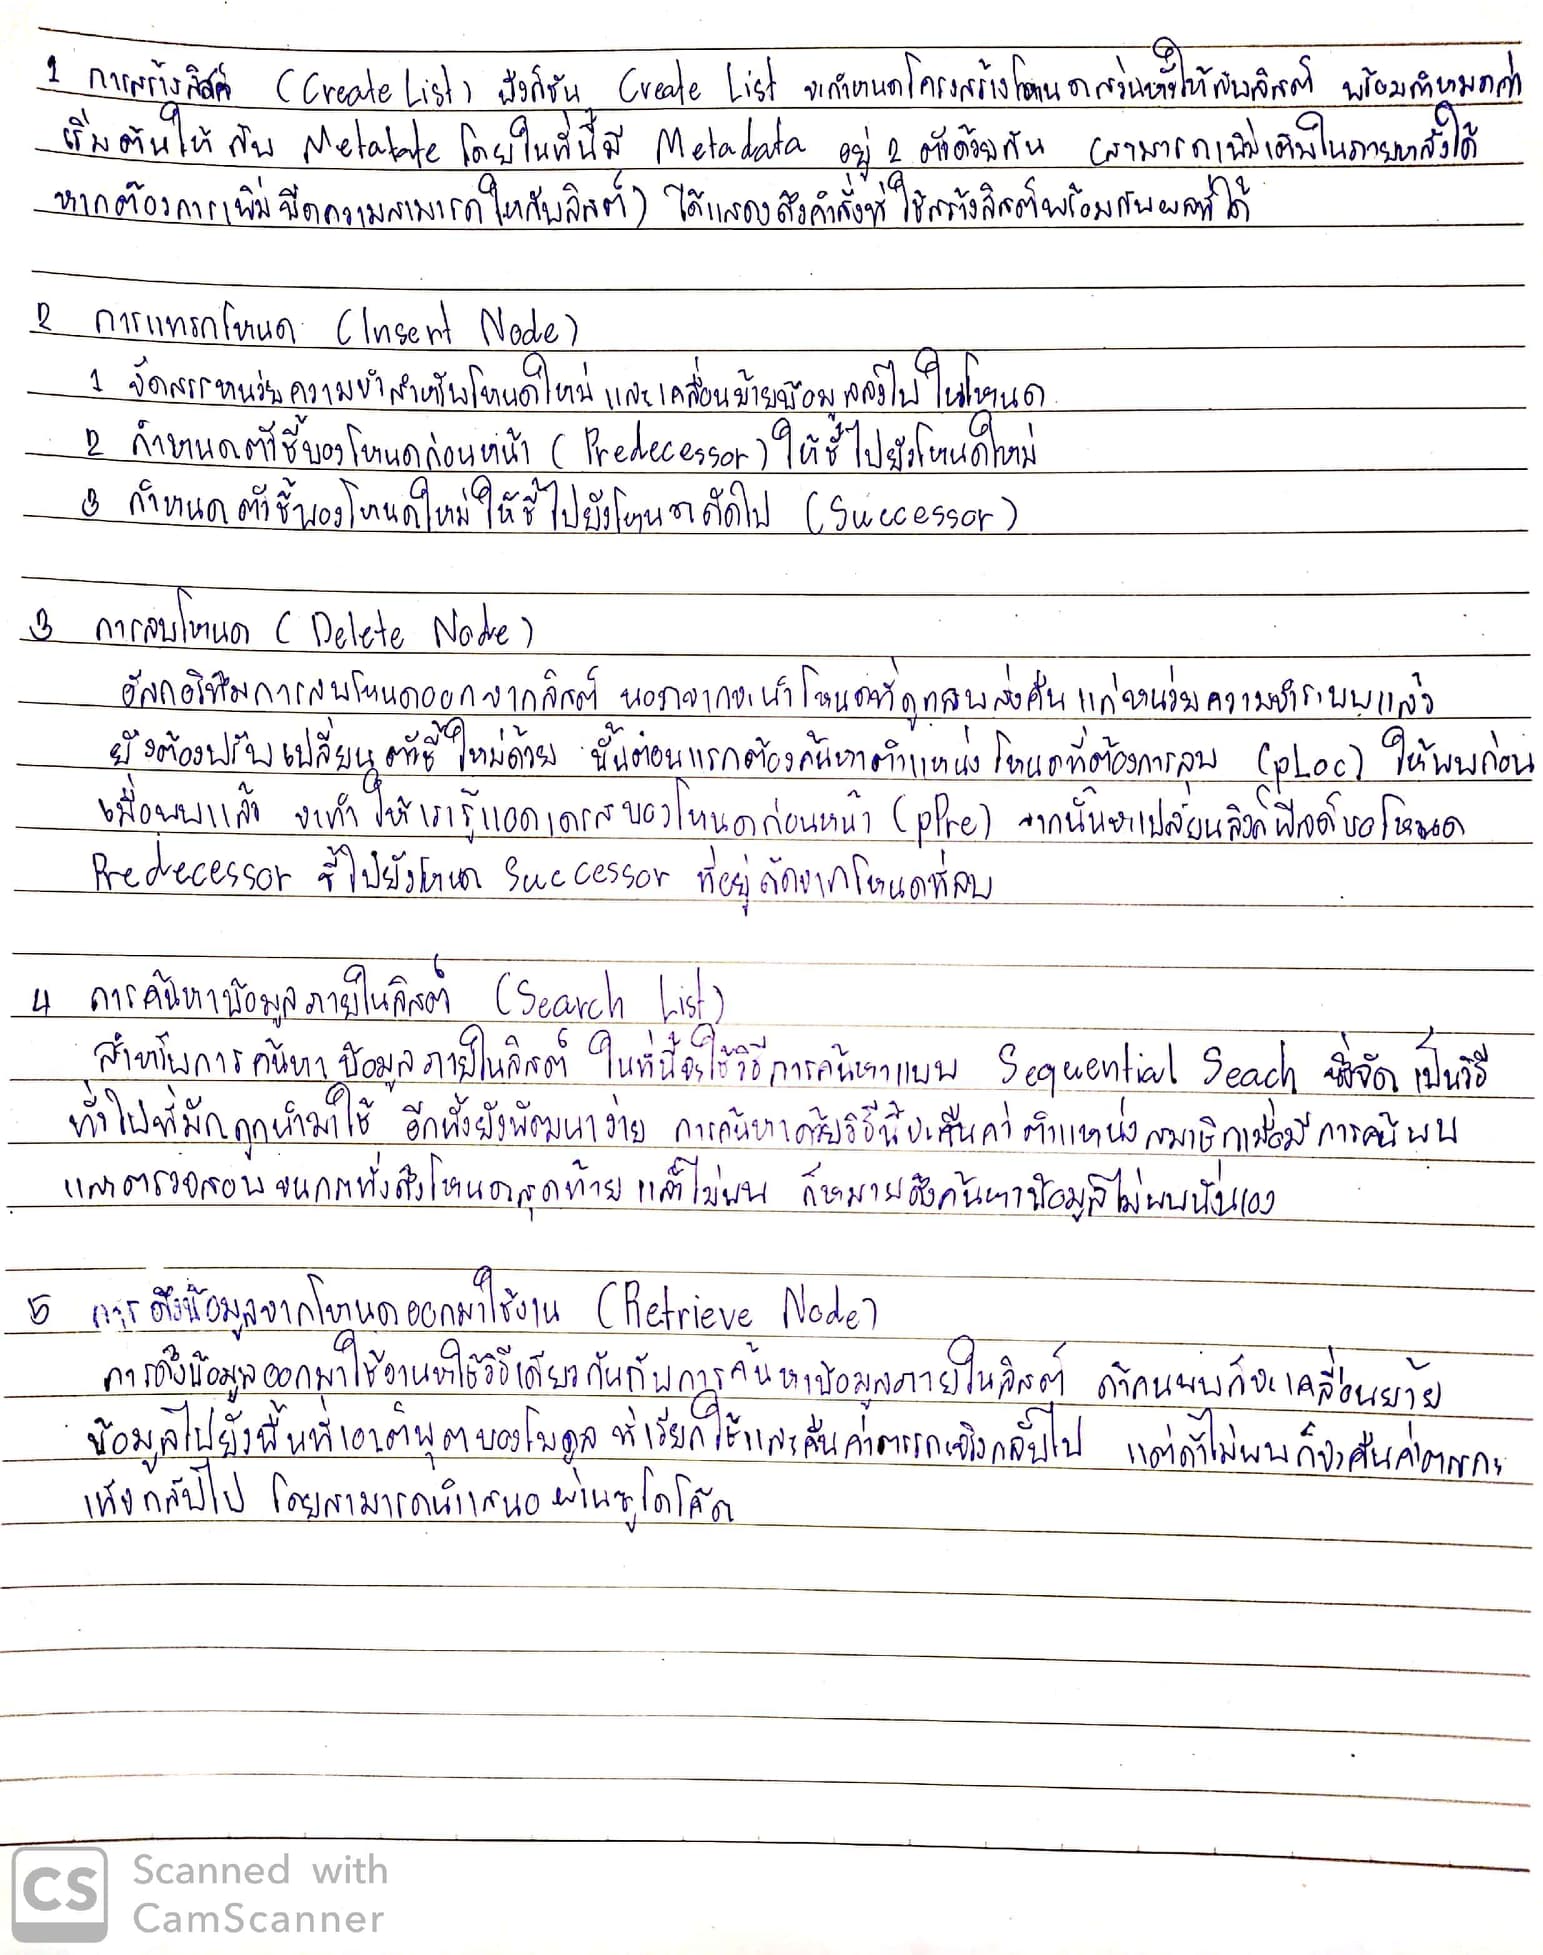 1 การสร้างลิสต์ (Create List) ฟังก์ชัน Create List จะกำหนดโครงสร้างโหนดส่วนหัวให้กับลิสต์ พร้อมกำหนดค่า
เริ่มต้นให้ กับ Metatate โดยในที่นี้มี Metadata อยู่ 2 ตัวด้วยกัน (สามารถเพิ่มเติมในภายหลังได้
หากต้องการเพิ่มขีดความสามารถให้กับลิสต์) ได้แสดงถึงคำสั่งที่ใช้สร้างลิสต์พร้อมกับผลที่ได้
2 การแทรกโหนด (Insert Node)
1 จัดสรรหน่วยความจำสำหรับโหนดใหม่ และเคลื่อนย้ายข้อมูลลงไปในโหนด
2 กำหนดตัวชี้ของโหนดก่อนหน้า (Predecessor) ให้ชี้ไปยังโหนดใหม่
3 กำหนดตัวชี้ของโหนดใหม่ ให้ชี้ไปยังโหนดถัดไป (Successor)
3 การลบโหนด (Delete Node)
อัลกอริทึมการลบโหนดออกจากลิสต์ นอกจากจะนำโหนดที่ถูกลบส่งคืนแก่หน่วยความจำระบบแล้ว
ยังต้องปรับเปลี่ยนตัวชี้ใหม่ด้วย ขั้นตอนแรกต้องค้นหาตำแหน่งโหนดที่ต้องการลบ (pLoc) ให้พบก่อน
เมื่อพบแล้ว จะทำให้เรารู้แอดเดรสของโหนดก่อนหน้า (pPre) จากนั้นจะเปลี่ยนลิงก์ฟิลด์ของโหนด
Predecessor ชี้ไปยังโหนด Successor ที่อยู่ถัดจากโหนดที่ลบ
4 การค้นหาข้อมูลภายในลิสต์ (Search List)
สำหรับการค้นหาข้อมูลภายในลิสต์ ในที่นี้จะใช้วิธีการค้นหาแบบ Sequential Seach ซึ่งจัดเป็นวิธี
ทั่วไปที่มักถูกนำมาใช้ อีกทั้งยังพัฒนาง่าย การค้นหาด้วยวิธีนี้จะคืนค่าตำแหน่งสมาชิกเมื่อมีการค้นพบ
และตรวจสอบจนกระทั่งถึงโหนดสุดท้าย แล้วไม่พบ ก็หมายถึงค้นหาข้อมูลไม่พบนั่นเอง
5 การดึงข้อมูลจากโหนดออกมาใช้งาน (Retrieve Node)
การดึงข้อมูลออกมาใช้งานจะใช้วิธีเดียวกันกับการค้นหาข้อมูลภายในลิสต์ ถ้าค้นพบก็จะเคลื่อนย้าย
ข้อมูลไปยังพื้นที่เอาต์พุตของโมดูลที่เรียกใช้และคืนค่าตรรกะจริงกลับไป แต่ถ้าไม่พบก็จะคืนค่าตรรกะ
เท็จกลับไป โดยสามารถนำเสนอผ่านซูโดโค้ด
CS Scanned with
CamScanner